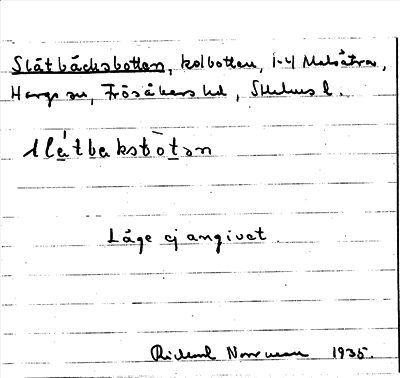 Slåtbäcksbotten, kolbotten, 1-4 Malsätra,
Hargs sn, Frösåkers hd, Sthlms l.
slåtbaksbòtən
Läge ej angivet
Rickard Norrman 1935.